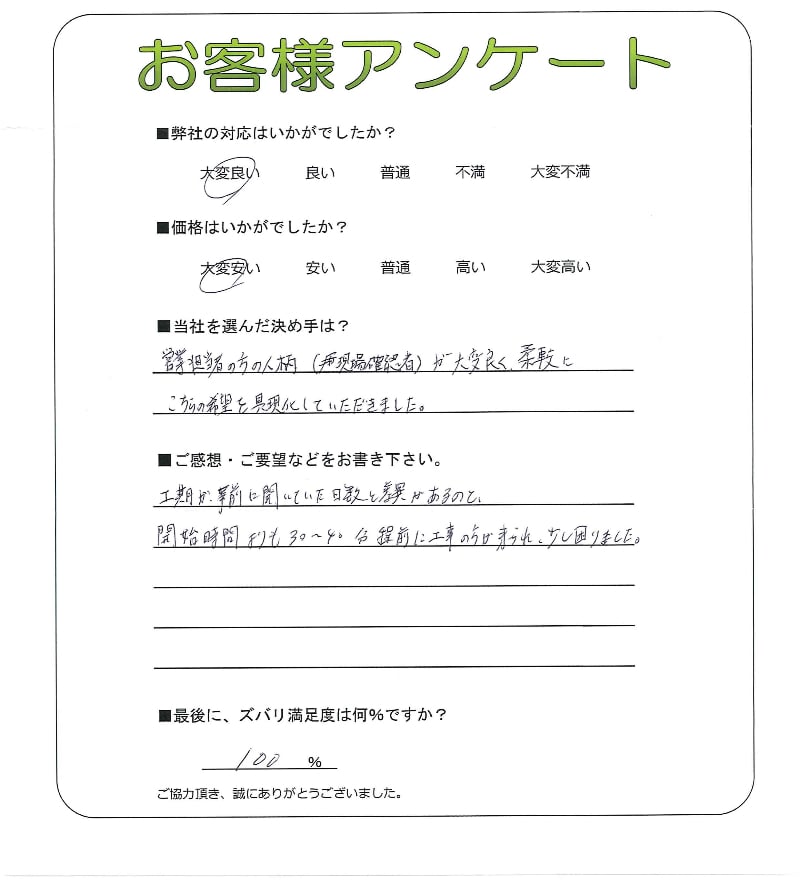 お客様アンケート
■弊社の対応はいかがでしたか？
大変良い 良い 普通 不満 大変不満
■価格はいかがでしたか？
大変安い 安い 普通 高い 大変高い
■当社を選んだ決め手は？
営業担当者の方の人柄（兼現場確認者）が大変良く、柔軟に
こちらの希望を具現化していただきました。
■ご感想・ご要望などをお書き下さい。
工期が、事前に聞いていた日数と差異があるのと、
開始時間よりも30～40分程前に工事の方が来られ、少し困りました。
■最後に、ズバリ満足度は何％ですか？
100 %
ご協力頂き、誠にありがとうございました。